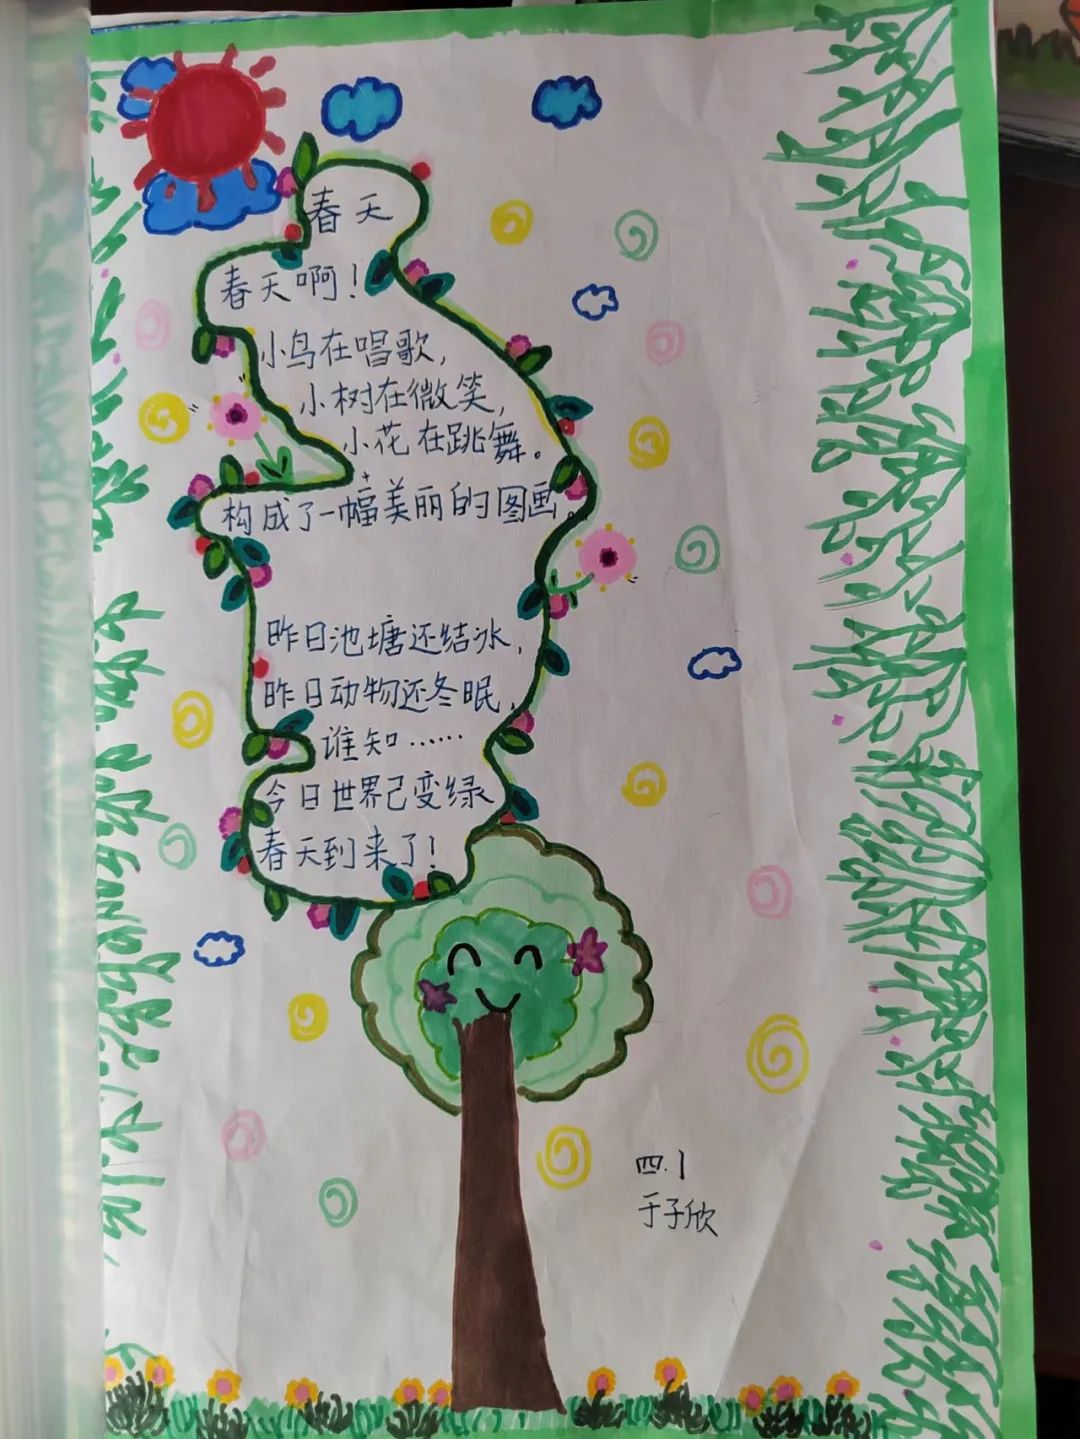 春天
春天啊！
小鸟在唱歌，
小树在微笑，
小花在跳舞。
构成了一幅美丽的图画。
昨日池塘还结冰，
昨日动物还冬眠，
谁知……
今日世界己变绿
春天到来了！
四.1
于子欣